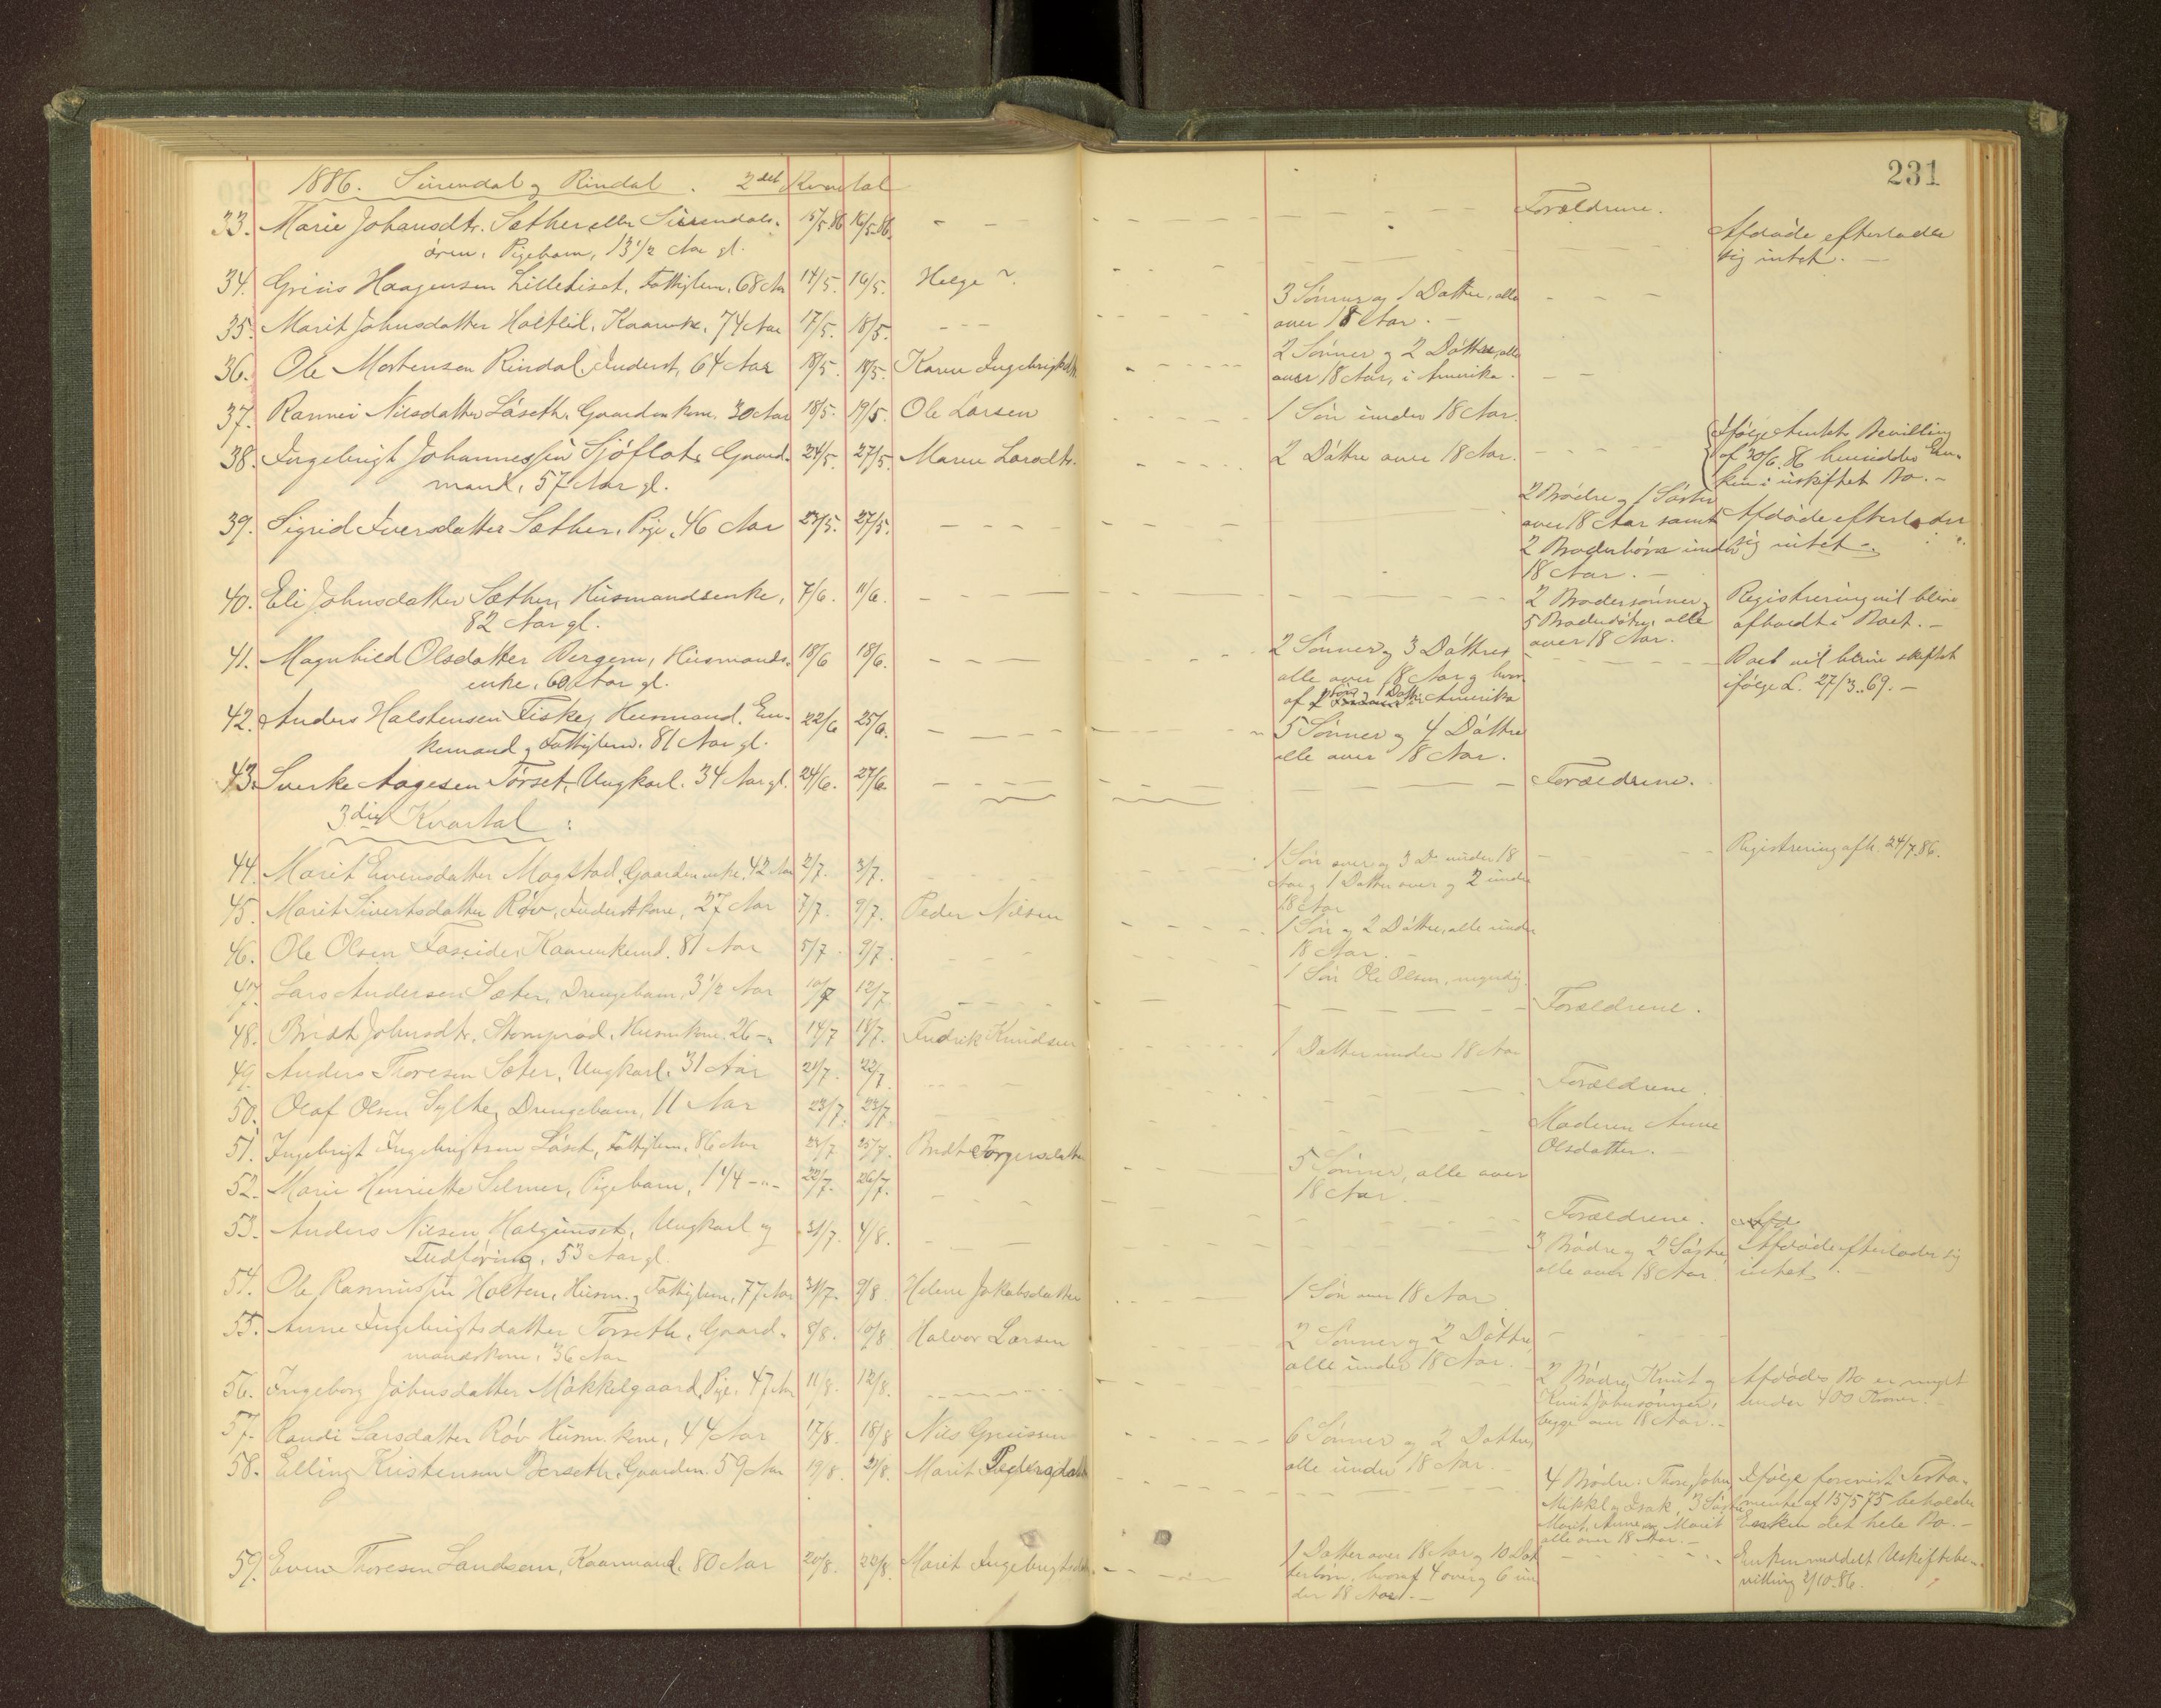 231
1886. Surendal og Rindal. 2det Kvartal
33. Marie Johansdtr. Sæther eller Surendals- 15/5 86 16/5 86. Forældrene. Afdøde efterlader
øren, Pigebarn, 13 1/2 Aar gl. sig intet. —
34. Haagensen Fattiglem, 68 Aar 14/5. 16/5. Helge ~ 3 Sønner og 1 Datter, alle
over 18 Aar. —
35. Marit Johnsdatter Holtlid, Kaarenke, 74 Aar 17/5. 18/5. 2 Sønner og 2 Døttre, alle
over 18 Aar, i Amerika.
36. Ole Mortensen Rindal, Inderst, 64 Aar 18/5. 18/5. Karen Ingebrigtsdtr.
37. Rannei Nilsdatter Løseth, Gaardmkone, 30 Aar 18/5. 19/5. Ole Larsen 1 Søn under 18 Aar.
38. Ingebrigt Johannessen Sjøflot, Gaard- 24/5. 27/5. Maren Larsdtr. 2 Døttre over 18 Aar. Ifølge Amtets Bevilling
af 30/6. 86 hensidder En-
mand, 57 Aar gl. ken i uskiftet Bo. —
39. Sigrid Iversdatter Sæther, Pige, 46 Aar 23/5. 27/5. 2 Brødre og 1 Søster
over 18 Aar samt Afdøde efterlader
2 Broderbørn under sig intet —
18 Aar. —
40. Eli Johnsdatter Sæther, Husmandsenke, 7/6. 11/6. 2 Brodersønner og Registrering vil blive
82 Aar gl. 5 Broderdøtre, alle afholdt i Boet. —
over 18 Aar.
41. Magnhild Olsdatter Bergem, Husmands- 18/6 18/6. 2 Sønner og 3 Døttre, Boet vil blive skiftet
enke, 60 Aar gl. alle over 18 Aar og hvor- ifølge L. 27/3. 69. —
af 1 Søn og 1 Datter i Amerika
42. Anders Halstensen Fiske, Husmand, En- 22/6 25/6. 5 Sønner og 4 Døttre
kemand og Fattiglem. 81 Aar gl. alle over 18 Aar.
43. Sverke Aagesen Tørset, Ungkarl. 34 Aar gl. 24/6. 27/6. Forældrene.
3die Kvartal:
44. Marit Evensdatter Magstad, Gaardmenke, 42 Aar 2/7. 3/7. 1 Søn over og 3 Do under 18 Registrering afh. 24/7. 86.
Aar og 1 Datter over og 2 under
18 Aar
45. Marit Sivertsdatter Røv, Inderstkone, 27 Aar 7/7. 9/7. Peder Nilsen 1 Søn og 2 Døttre, alle under
18 Aar. —
46. Ole Olsen Kaarenkemd. 81 Aar 5/7. 9/7. 1 Søn Ole Olsen, myndig.
47. Lars Andersen Sæter, Drengebarn, 3 1/2 Aar 10/7 12/7 Forældrene.
48. Bridt Johnsdtr. Husmkone. 26 — 14/7 18/7. Fredrik Knudsen 1 Datter under 18 Aar
49. Anders Thoresen Sæter, Ungkarl. 31 Aar 21/7. 22/7 Forældrene.
50. Olaf Olsen Sylte, Drengebarn, 11 Aar 23/7. 23/7. Moderen Anne
Olsdatter. —
51. Ingebrigt Ingebrigtsen Løset, Fattiglem, 86 Aar 23/7 25/7. Bridt Torgersdatter 5 Sønner, alle over
18 Aar.
52. Marie Henriette Selmer, Pigebarn, 1 1/4 —"— 22/7. 26/7. Forældrene.
53. Anders Nilsen Halgunset, Ungkarl og 31/7. 4/8. 3 Brødre og 2 Søstre, Afdøde efterlader sig
53 Aar gl. alle over 18 Aar. intet.
54. Ole Rasmussen Holten, Husm. og Fattiglem, 77 Aar 31/7. 9/8 Helene Jakobsdatter 1 Søn over 18 Aar
55. Anne Ingebrigtsdatter Torseth, Gaard- 8/8. 10/8 Halvor Larsen 2 Sønner og 2 Døttre
mandskone, 36 Aar alle under 18 Aar.
56. Ingeborg Johnsdatter Møkkelgaard, Pige, 47 Aar 11/8. 12/8. 2 Brødre, Knut og Afdødes Bo er meget
Knut Johnsønner, under 400 Kroner.
begge over 18 Aar. —
57. Randi Larsdatter Røv Husm.kone, 44 Aar 17/8. 18/8 Nils 6 Sønner og 2 Døttre,
alle under 18 Aar.
58. Elling Kristensen Bærseth, Gaardm. 59 Aar 19/8. Marit Pedersdatter 4 Brødre: Thore, John, Ifølge forevist Testa-
Mikkel og Isak, 3 Søstre mente af 15/5 75 beholder
Marit, Anne og Marit Enken det hele Bo. —
alle over 18 Aar. —
59. Even Thoresen Landsem, Kaarmand. 80 Aar 20/8. 22/8. Marit Ingebrigtsdatter 1 Datter over 18 Aar og 10 Dat- Enken meddelt Uskiftebe-
terbørn, hvoraf 4 over og 6 un- villing 2/10. 86.
der 18 Aar. —